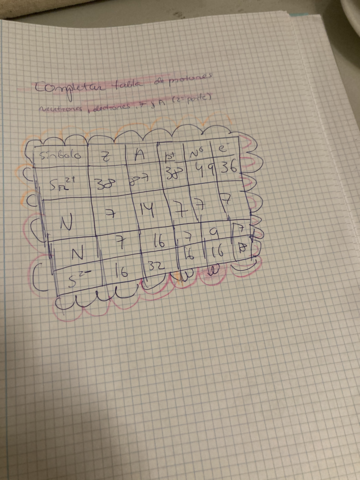 Completar tabla de protones
neutrones, electrones, z y A (1º parte)
Símbolo Z A p+ Nº e-
Sr2+ 38 87 38 49 36
N 7 14 7 7 7
N 7 16 7 9 7
S2- 16 32 16 16 18